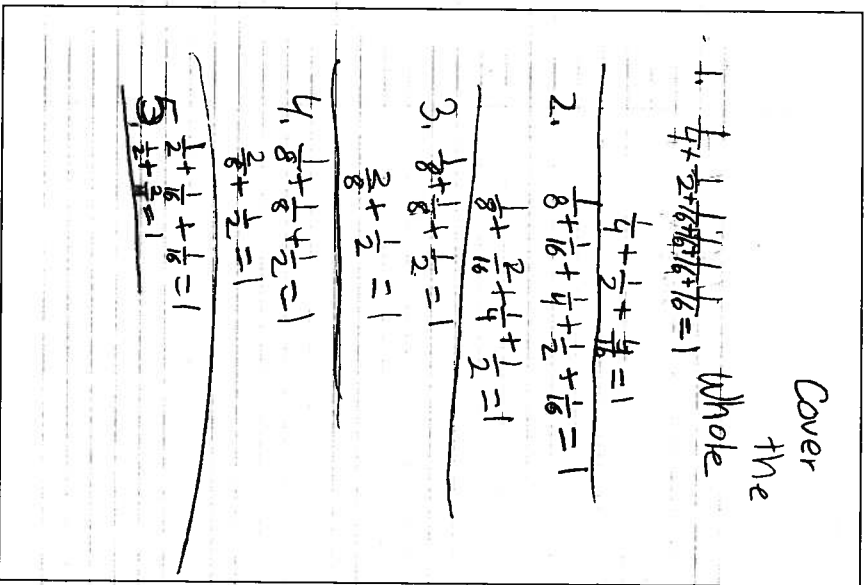 Cover
the
Whole
1. 1/4 + 1/2 + 1/16 + 1/16 + 1/16 + 1/16 = 1
1/4 + 1/2 + 4/16 = 1
2. 1/8 + 1/16 + 1/4 + 1/2 + 1/16 = 1
1/8 + 2/16 + 1/4 + 1/2 = 1
3. 1/8 + 1/8 + 1/2 = 1
2/8 + 1/2 = 1
4. 1/8 + 1/8 + 1/2 = 1
2/8 + 1/2 = 1
5. 1/2 + 1/16 + 1/16 = 1